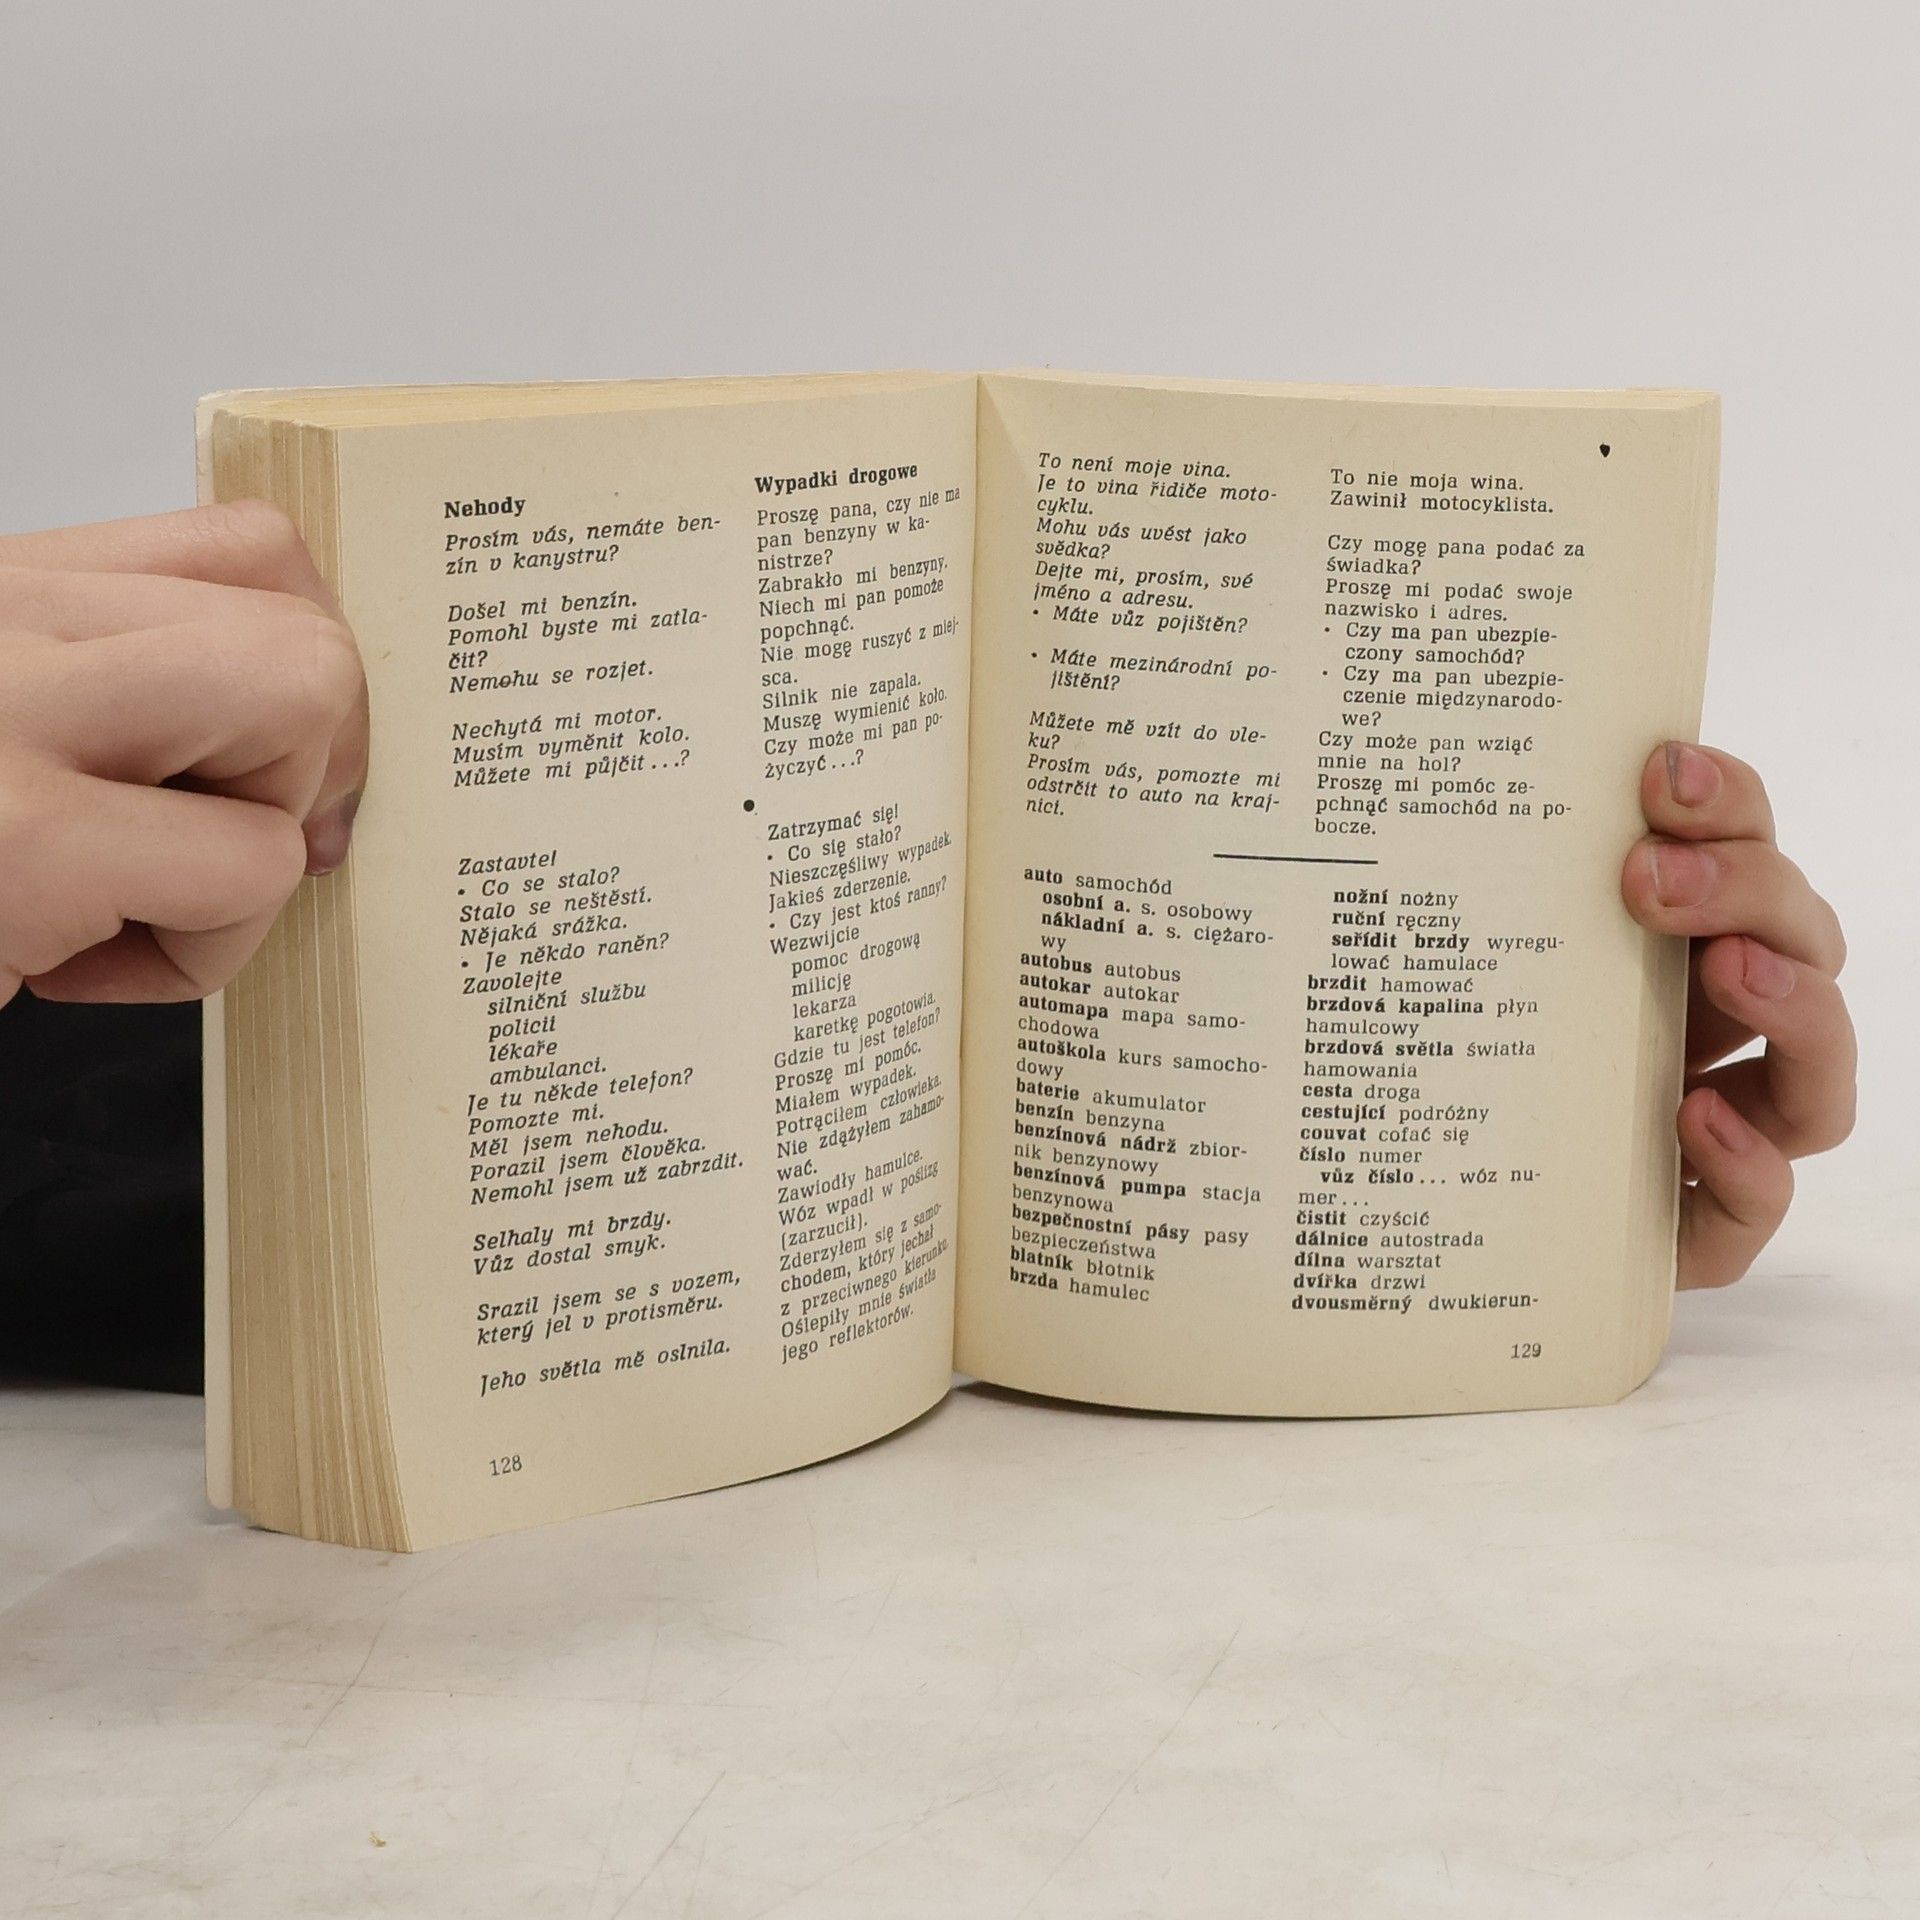 Nehody
Prosím vás, nemáte ben-
zín v kanystru?
Došel mi benzín.
Pomohl byste mi zatla-
čit?
Nemohu se rozjet.
Nechytá mi motor.
Musím vyměnit kolo.
Můžete mi půjčit...?
Zastavte!
• Co se stalo?
Stalo se neštěstí.
Nějaká srážka.
• Je někdo raněn?
Zavolejte
silniční službu
policii
lékaře
ambulanci.
Je tu někde telefon?
Pomozte mi.
Měl jsem nehodu.
Porazil jsem člověka.
Nemohl jsem už zabrzdit.
Selhaly mi brzdy.
Vůz dostal smyk.
Srazil jsem se s vozem,
který jel v protisměru.
Jeho světla mě oslnila.
128
Wypadki drogowe
Proszę pana, czy nie ma
pan benzyny w ka-
nistrze?
Zabrakło mi benzyny.
Niech mi pan pomoże
popchnąć.
Nie mogę ruszyć z miej-
sca.
Silnik nie zapala.
Muszę wymienić koło.
Czy może mi pan po-
życzyć...?
Zatrzymać się!
• Co się stało?
Nieszczęśliwy wypadek.
Jakieś zderzenie.
• Czy jest ktoś ranny?
Wezwijcie
pomoc drogową
milicję
lekarza
karetkę pogotowia.
Gdzie tu jest telefon?
Proszę mi pomóc.
Miałem wypadek.
Potrąciłem człowieka.
Nie zdążyłem zahamo-
wać.
Zawiodły hamulce.
Wóz wpadł w poślizg
(zarzucił).
Zderzyłem się z samo-
chodem, który jechał
z przeciwnego kierunku.
Oślepiły mnie światła
jego reflektorów.
To není moje vina.
Je to vina řidiče moto-
cyklu.
Mohu vás uvést jako
svědka?
Dejte mi, prosím, své
jméno a adresu.
• Máte vůz pojištěn?
• Máte mezinárodní po-
jištění?
Můžete mě vzít do vle-
ku?
Prosím vás, pomozte mi
odstrčit to auto na kraj-
nici.
To nie moja wina.
Zawinił motocyklista.
Czy mogę pana podać za
świadka?
Proszę mi podać swoje
nazwisko i adres.
• Czy ma pan ubezpie-
czony samochód?
• Czy ma pan ubezpie-
czenie międzynarodo-
we?
Czy może pan wziąć
mnie na hol?
Proszę mi pomóc ze-
pchnąć samochód na po-
bocze.
auto samochód
osobní a. s. osobowy
nákladní a. s. ciężaro-
wy
autobus autobus
autokar autokar
automapa mapa samo-
chodowa
autoškola kurs samocho-
dowy
baterie akumulator
benzín benzyna
benzínová nádrž zbior-
nik benzynowy
benzínová pumpa stacja
benzynowa
bezpečnostní pásy pasy
bezpieczeństwa
blatník błotnik
brzda hamulec
nožní nożny
ruční ręczny
seřídit brzdy wyregu-
lować hamulace
brzdit hamować
brzdová kapalina płyn
hamulcowy
brzdová světla światła
hamowania
cesta droga
cestující podróżny
couvat cofać się
číslo numer
vůz číslo... wóz nu-
mer...
čistit czyścić
dálnice autostrada
dílna warsztat
dvířka drzwi
dvousměrný dwukierun-
129